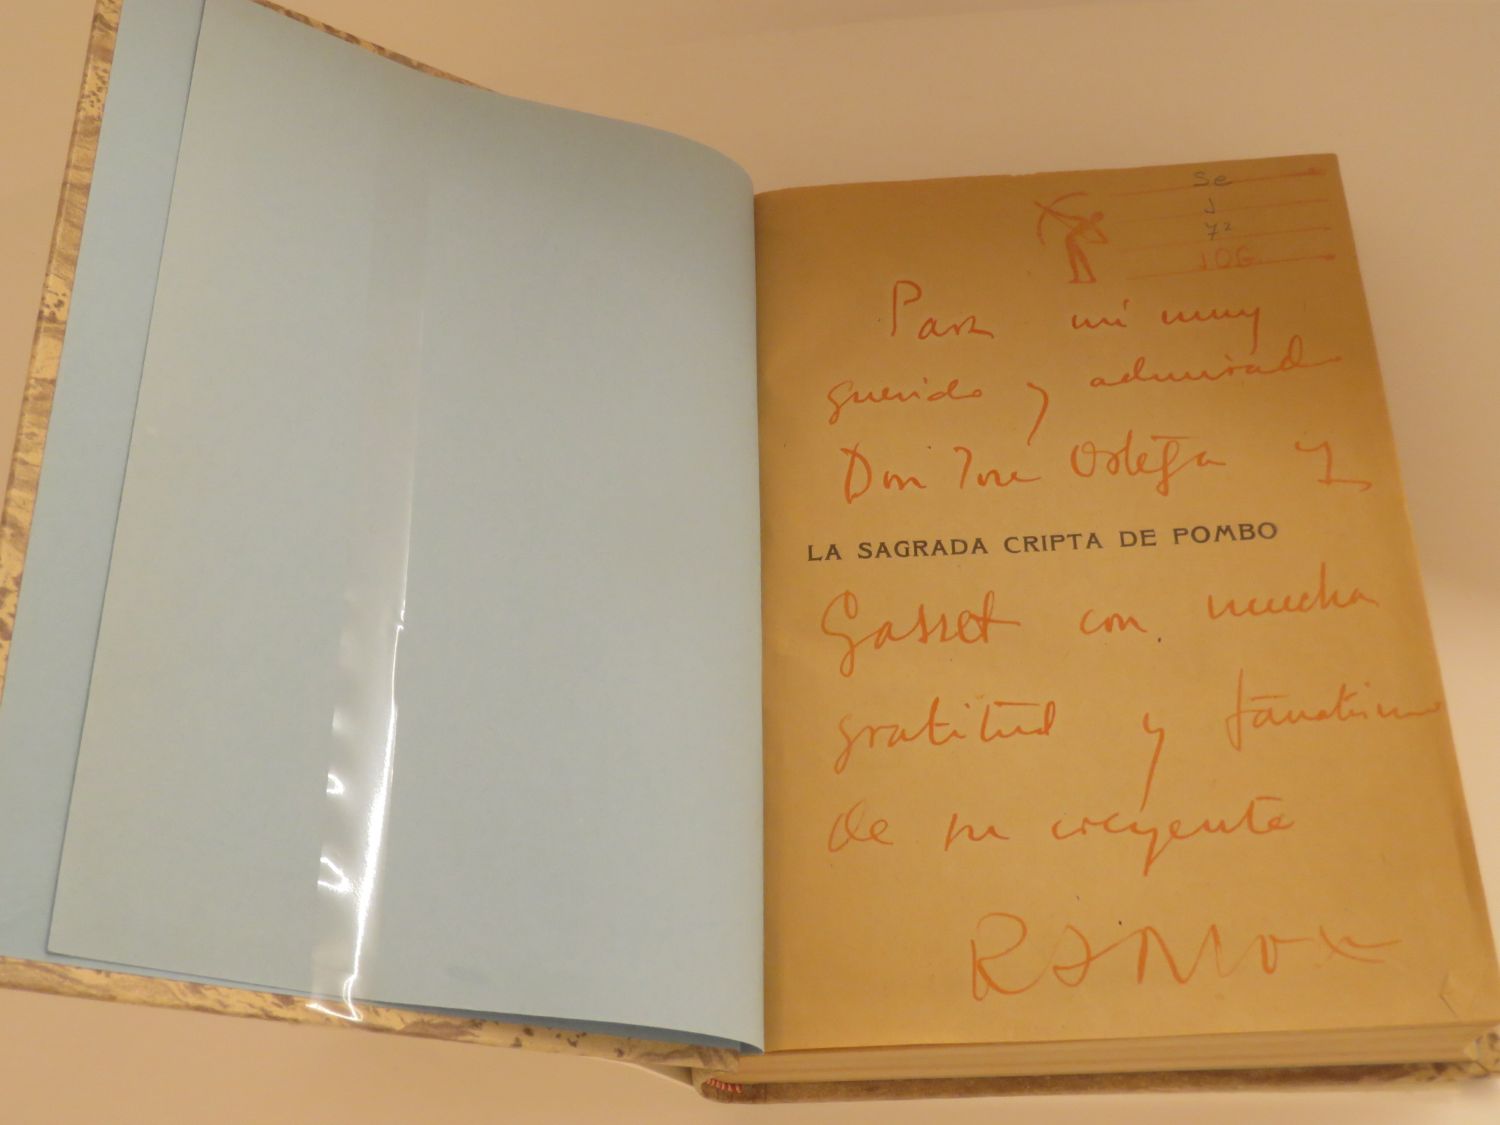 Se
J
72
JOG
Para mi muy
querido y admirado
Don Jose Ortega y
LA SAGRADA CRIPTA DE POMBO
Gasset con mucha
gratitud y fanatismo
de su creyente
RAMON